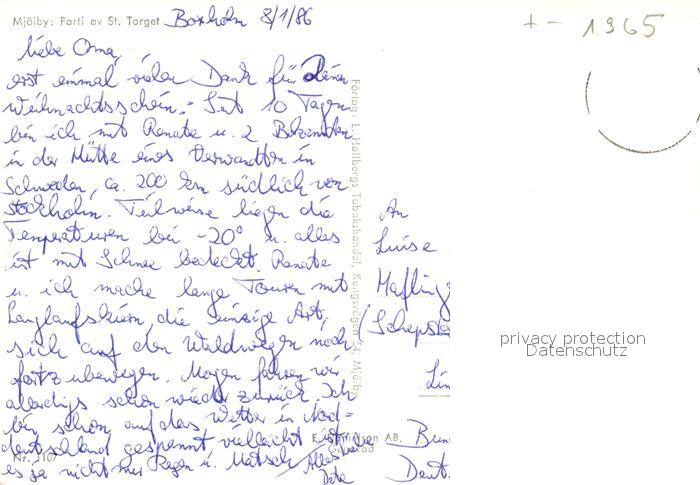 Mjölby: Parti av St. Torget Boxholm 8/1/86
+ - 1965
liebe Oma,
erst einmal vielen Dank für Deinen
Weihnachtsschein. Seit 10 Tagen
bin ich mit Renate u. 2 Bekannten
in der Hütte eines Verwandten in
Schweden, ca. 200 km südlich von
Stockholm. Teilweise liegen die
Temperaturen bei -20° u. alles
ist mit Schnee bedeckt. Renate
u. ich mache lange Touren mit
Langlaufskiern, die einzige Art,
sich auf den Waldwegen noch
fortzubewegen. Morgen fahren wir
allerdings schon wieder zurück. Ich
bin schon auf das Wetter in Nord=
deutschland gespannt, vielleicht
es ja nicht nur Regen u. Matsch
Alles
Nr. 1107
Förlag: L. Hallborgs Tobakshandel, Kungsvägen, Mjölby
An
Luise
Hafling
(Scheps
Lin
Bun
Deut
privacy protection
Datenschutz